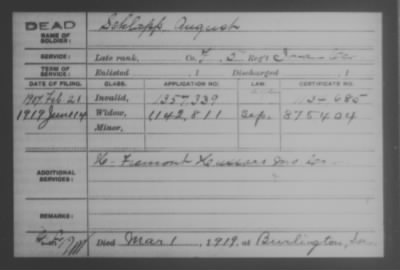 DEAD
NAME OF SOLDIER: Schlapp August
SERVICE: Late rank, Co. F, 5 Reg't
TERM OF SERVICE: Enlisted , 1 Discharged , 1
DATE OF FILING. CLASS. APPLICATION NO. LAW. CERTIFICATE NO.
1907 Feb. 21 Invalid, 1357,339 1134685
1919 June 14 Widow, 1142,811 Sep. 875404
Minor,
ADDITIONAL SERVICES: Fremont Hussars Mo
REMARKS:
Died Mar 1, 1919, at Burlington, Ia.